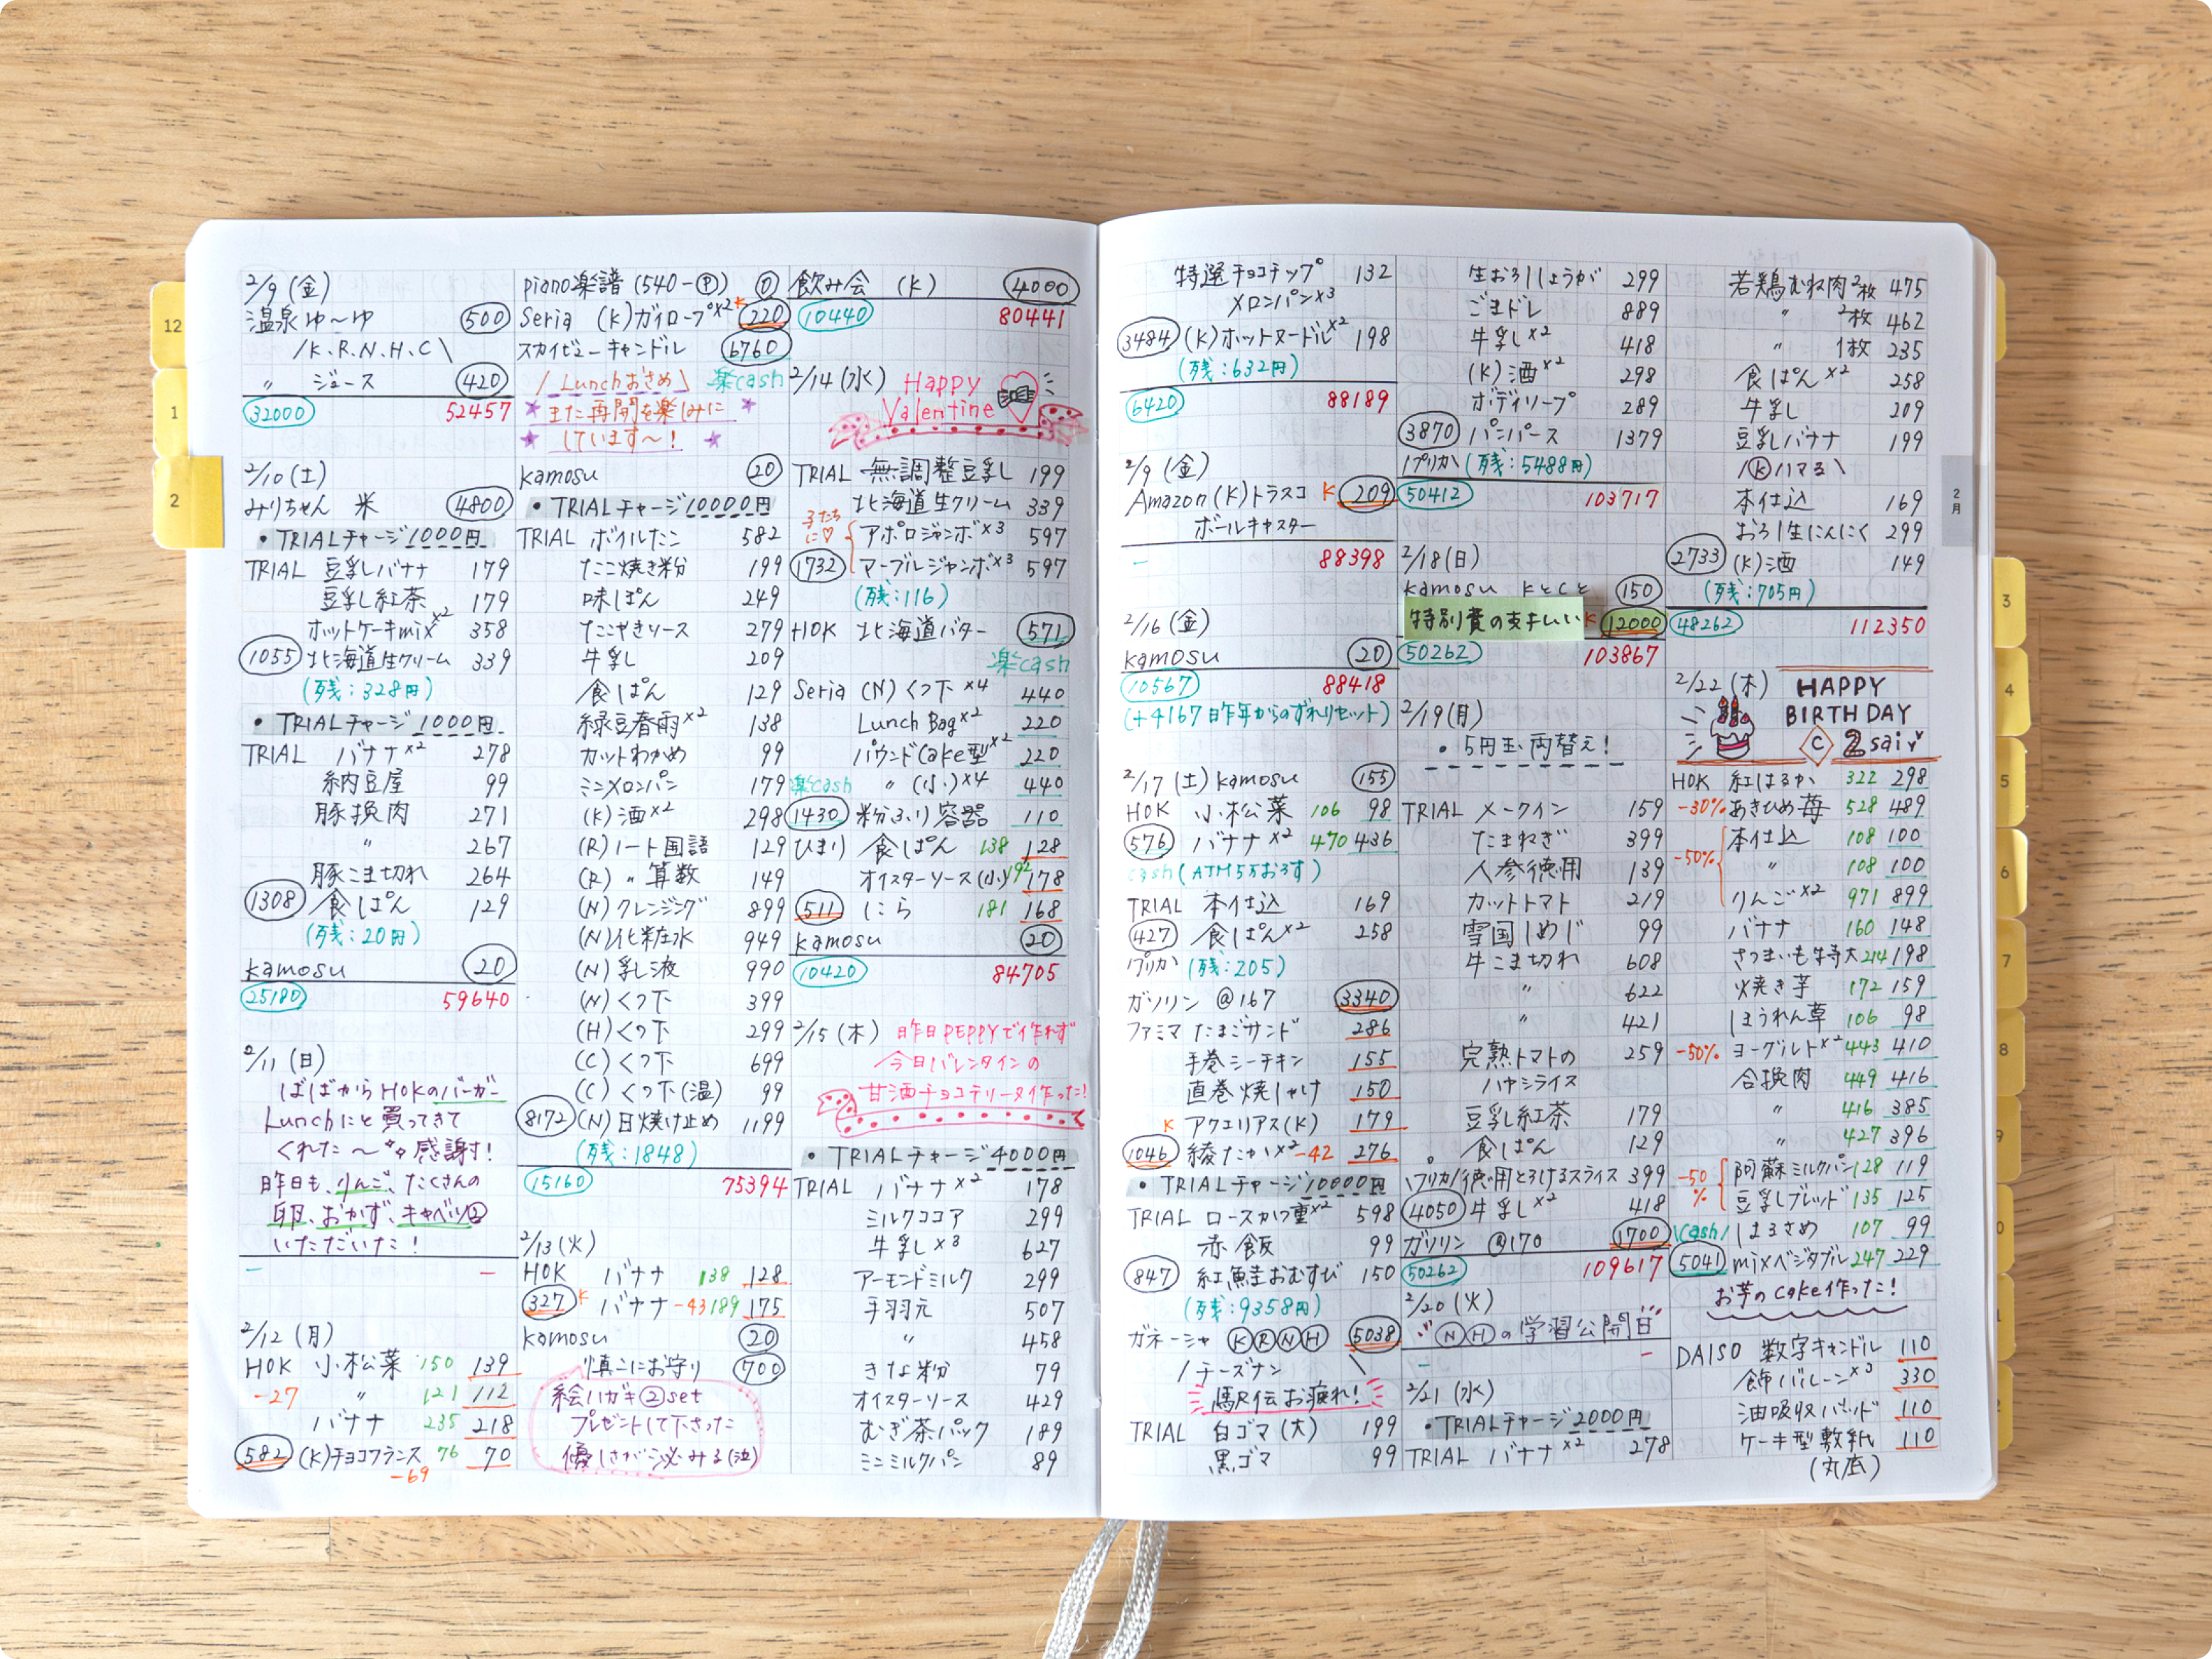 12
1
2
2/9 (金)
温泉ゆ〜ゆ 500
/K.R.N.H.C\
〃 ジュース 420
32000 52457
2/10 (土)
みりちゃん 米 4800
• TRIALチャージ1000円
TRIAL 豆乳バナナ 179
豆乳紅茶 179
ホットケーキmix×2 358
1055 北海道生クリーム 339
(残:328円)
• TRIALチャージ1000円
TRIAL バナナ×2 278
納豆屋 99
豚挽肉 271
〃 267
豚こま切れ 264
1308 食ぱん 129
(残:20円)
kamosu 20
25180 59640
2/11 (日)
ばばからHOKのバーガー
Lunchにと買ってきて
くれた〜 感謝!
昨日も、りんご、たくさんの
卵、おかず、キャベツ②
いただいた!
– –
2/12 (月)
HOK 小松菜 150 139
-27 〃 121 112
バナナ 235 218
582 (K)チョコフランス 76 70
-69
piano楽譜 (540-Ⓟ) 0
Seria (K)ガイロープ×2 K 220
スカイビューキャンドル 6760
/Lunchおさめ\ 楽cash
また再開を楽しみに
しています〜!
kamosu 20
• TRIALチャージ10000円
TRIAL ボイルたこ 582
たこ焼き粉 199
味ぽん 249
たこやきソース 279
牛乳 209
食ぱん 129
緑豆春雨×2 138
カットわかめ 99
ミニメロンパン 179
(K)酒×2 298
(R)ノート国語 129
(R)〃 算数 149
(N)クレンジング 899
(N)化粧水 949
(N)乳液 990
(N)くつ下 399
(H)くつ下 299
(C)くつ下 699
(C)くつ下(温) 99
8172 (N)日焼け止め 1199
(残:1848)
15160 75394
2/13 (火)
HOK バナナ 138 128
327 K バナナ -43 189 175
kamosu 20
慎こにお守り 700
絵ハガキ②set
プレゼントして下さった
優しさが沁みる(泣)
飲み会 (K) 4000
10440 80441
2/14 (水) Happy
Valentine
TRIAL 無調整豆乳 199
北海道生クリーム 339
子たちに♡ アポロジャンボ×3 597
1732 マーブルジャンボ×3 597
(残:116)
HOK 北海道バター 571
楽cash
Seria (N)くつ下×4 440
Lunch Bag×2 220
パウンドCake型×2 220
楽cash 〃 (小)×4 440
1430 粉ふり容器 110
ひまり 食ぱん 138 128
オイスターソース(小) 192 178
511 にら 181 168
kamosu 20
10420 84705
2/15 (木) 昨日PEPPYで作れず
今日バレンタインの
甘酒チョコテリーヌ作った!
• TRIALチャージ4000円
TRIAL バナナ×2 178
ミルクココア 299
牛乳×3 627
アーモンドミルク 299
手羽元 507
〃 458
きな粉 79
オイスターソース 429
むぎ茶パック 189
ミニミルクパン 89
特選チョコチップ 132
メロンパン×3
3484 (K)ホットヌードル×2 198
(残:632円)
6420 88189
2/9 (金)
Amazon(K)トラスコ K 209
ボールキャスター
– 88398
2/16 (金)
kamosu 20
10567 88418
(+4167 昨年からのずれリセット)
2/17 (土) kamosu 155
HOK 小松菜 106 98
576 バナナ×2 470 436
cash(ATM5万おろす)
TRIAL 本仕込 169
427 食ぱん×2 258
プリカ (残:205)
ガソリン @167 3340
ファミマ たまごサンド 286
手巻シーチキン 155
直巻焼しゃけ 150
K アクエリアス(K) 179
1046 綾たか×2 -42 276
• TRIALチャージ10000円
TRIAL ロースかつ重×2 598
赤飯 99
847 紅鮭おむすび 150
(残:9358円)
ガネーシャ ⓀⓇⓃⒽ 5038
/チーズナン
駅伝お疲れ!
TRIAL 白ゴマ(大) 199
黒ゴマ 99
生おろししょうが 299
ごまドレ 889
牛乳×2 418
(K)酒×2 298
ボディソープ 289
3870 パンパース 1379
プリカ (残:5488円)
50412 103717
2/18(日)
kamosu KとCと 150
特別費の支払い K 12000
50262 103867
2/19(月)
• 5円玉両替え!
TRIAL メークイン 159
たまねぎ 399
人参徳用 139
カットトマト 219
雪国しめじ 99
牛こま切れ 608
〃 622
〃 421
完熟トマトの 259
ハヤシライス
豆乳紅茶 179
食ぱん 129
プリカ 徳用とろけるスライス 399
4050 牛乳×2 418
ガソリン @170 1700
50262 109617
2/20 (火)
ⓃⒽの学習公開日
– –
2/21 (水)
• TRIALチャージ2000円
TRIAL バナナ×2 278
若鶏むね肉2枚 475
〃 2枚 462
〃 1枚 235
食ぱん×2 258
牛乳 209
豆乳バナナ 199
/Ⓚハマる\
本仕込 169
おろし生にんにく 299
2733 (K)酒 149
(残:705円)
48262 112350
2/22 (木) HAPPY
BIRTHDAY
C 2sai
HOK 紅はるか 322 298
-30% あきひめ苺 528 489
-50% 本仕込 108 100
〃 108 100
りんご×2 971 899
バナナ 160 148
さつまいも特大 214 198
焼き芋 172 159
ほうれん草 106 98
-50% ヨーグルト×2 443 410
合挽肉 449 416
〃 416 385
〃 427 396
-50% 阿蘇ミルクパン 128 119
豆乳ブレッド 135 125
\Cash/ はるさめ 107 99
5041 mixベジタブル 247 229
お芋のcake作った!
DAISO 数字キャンドル 110
飾バルーン×3 330
油吸収パッド 110
ケーキ型敷紙 110
(丸底)
2月
3
4
5
6
7
8
9